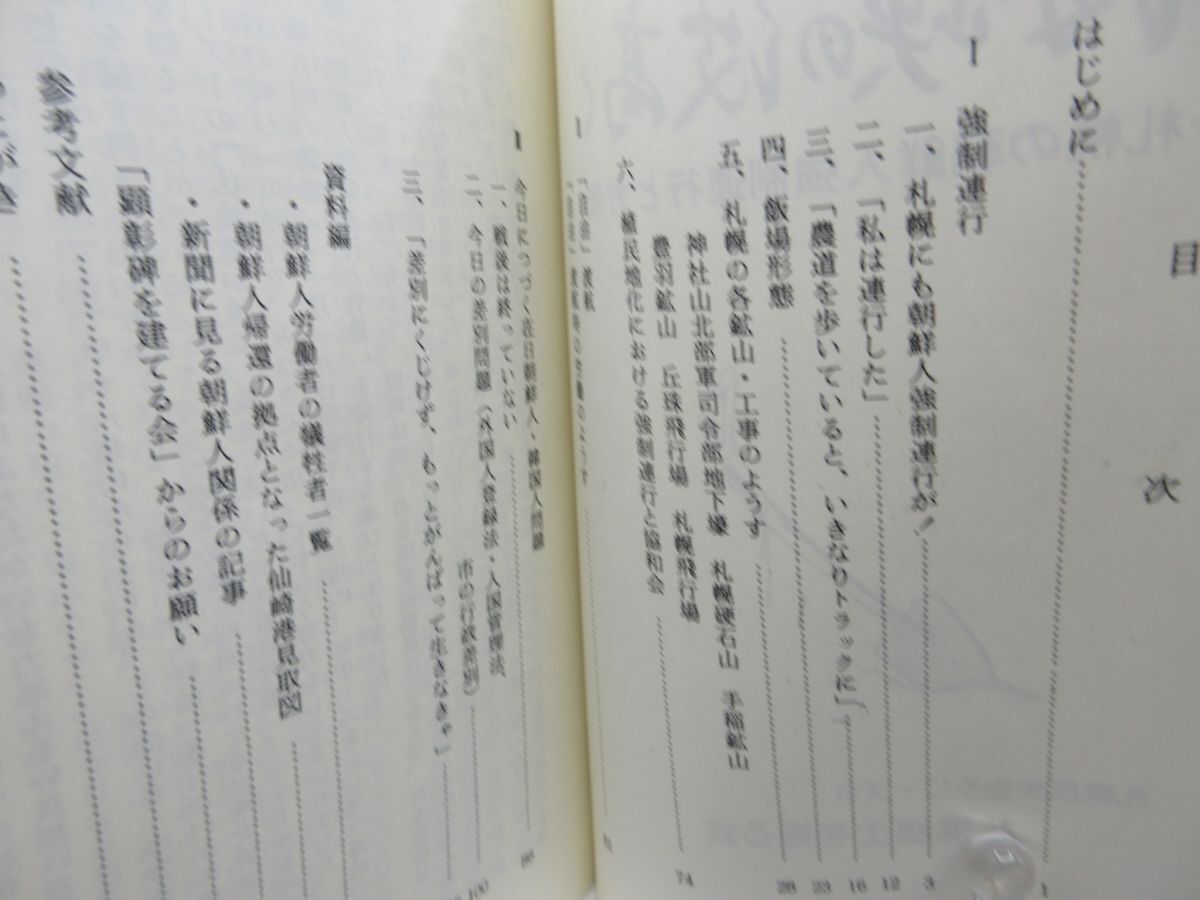 目次
はじめに……1
I 強制連行
一、札幌にも朝鮮人強制連行が！……3
二、「私は連行した」……12
三、「農道を歩いていると、いきなりトラックに」……16
四、飯場形態……23
五、札幌の各鉱山・工事のようす……28
神社山北部軍司令部地下壕 札幌硬石山 手稲鉱山
豊羽鉱山 丘珠飛行場 札幌飛行場
六、植民地化における強制連行と協和会……74
今日につづく在日朝鮮人・韓国人問題
一、戦後は終っていない
二、今日の差別問題（外国人登録法・入国管理法、
市の行政差別）
三、「差別にくじけず、もっとがんばって生きなきゃ」……100
資料編
・朝鮮人労働者の犠牲者一覧
・朝鮮人帰還の拠点となった仙崎港見取図
・新聞に見る朝鮮人関係の記事
「顕彰碑を建てる会」からのお願い
参考文献